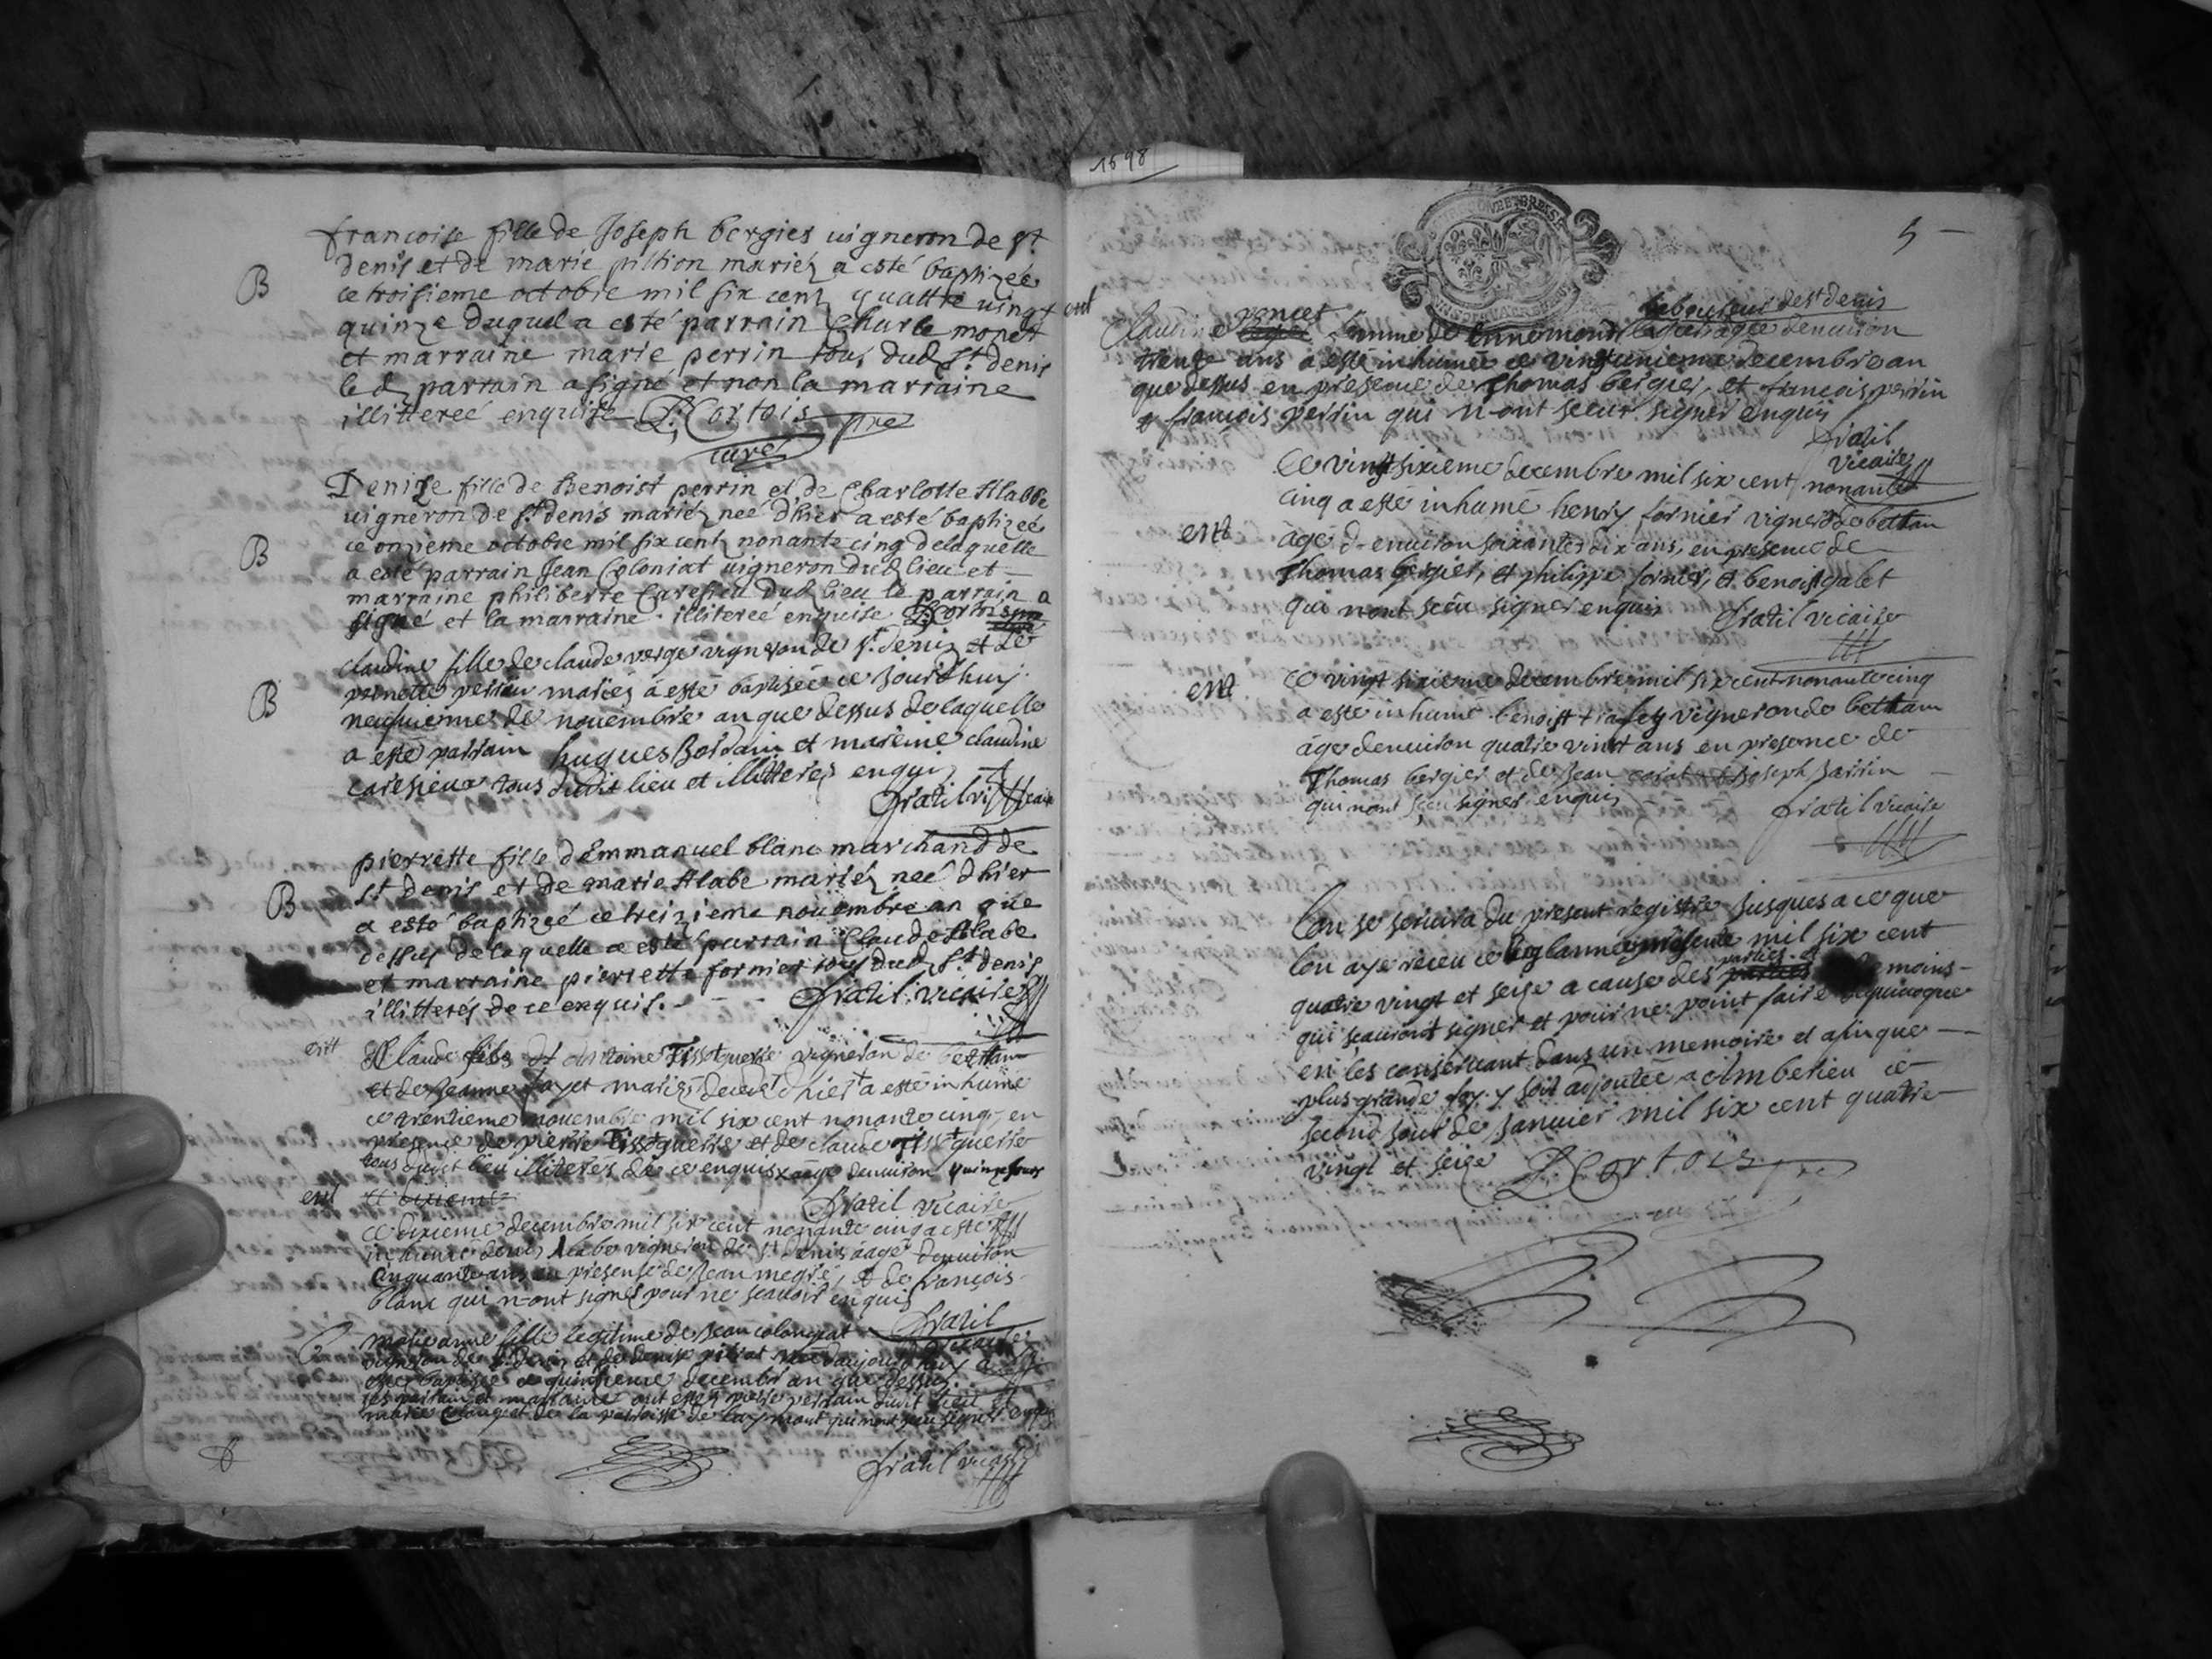 francoise fille de Joseph bergies vigneron de st
denis et de marie pithion mariéz a esté baptizeé
B
ce troisieme octobre mil six centz quattre vingt
quinze duquel a esté parrain Charle monet
et marraine marie perrin tous dud st. denis
led parrain a signé et non la marraine
illittereé enquise L. Cortois pre
curé
Denise fille de Benoist perrin et de Charlotte Alabe
vigneron de st denis mariéz neé dhier a esté baptizeé
B
ce onzieme octobre mil six centz nonante cinq delaquelle
a esté parrain Jean Coloniat vigneron dud lieu et
marraine philiberte Caresieu dud lieu le parrain a
signé et la marraine illitereé enquise L. Cortois pre
claudine fille de claude verge vigneron de st. denis et de
pernette perrin mariés a esté baptisée ce Jourdhuy
B
neufuieme de nouembre an que dessus de laquelle
a esté parrain hugues Bordain et mareine claudine
caresieux tous dudit lieu et illitteres enquis
fratil vicaire
pierrette fille d Emmanuel blanc marchand de
st denis et de marie Alabe mariéz neé dhier
B
a esté baptizeé ce treizieme nouembre an que
dessus delaquelle a esté parrain Claude Alabe
et marraine pierrette fornier tous dud st denis
illitterés de ce enquis. fratil vicaire
ent
Claude fils d antoine Tissotguerse vigneron de bettan
et de Jeanne fayet mariéz decedé dhier a esté inhumé
ce trentieme nouembre mil six cent nonante cinq, en
presence de pierre Tissotguerse et de claude Tissotguerse
tous dudit lieu illiterés de ce enquis x âage denuiron quinze jours
ent
fratil vicaire
ce dixieme decembre mil six cent nonante cinq a esté
inhumé denis Alabe vigneron de st denis âagé denuiron
cinquante ans en presense de Jean megre, et de francois
blanc qui n-ont signes pour ne scauoir enquis
fratil
vicaire
marie anne fille legitime de Jean colongeat
vigneron de st. denis et de denise pitrat neé daujourdhuy a
esté baptisée ce quinzieme decembre an que dessus
les parrain et marraine ont esté pierre perrain dudit lieu et
marie colongeat de la parroisse de qui nont sceu signer enquis
fratil vicaire
1698
5
ent
poncet
laboureur de st denis
Claudine femme de Ennemond agée denuiron
trente ans a esté inhumée ce vingtunieme decembre an
que dessus en presence de Thomas bergier, et françois perrin
& françois perrin qui n-ont sceu signer enquis
fratil
vicaire
Ce vingtsixieme decembre mil six cent nonante
cinq a esté inhumé henry fornier vigneron de bettan
ent
âgé d-enuiron soixante dix ans, en présence de
Thomas bergier, et philippe fornier, et benoist galet
qui nont sceu signer enquis fratil vicaire
ent
ce vingt sixieme decembre mil six cent nonante cinq
a esté inhumé benoist trafey vigneron de bettan
âge denuiron quatre vingt ans en presence de
Thomas bergier et de Jean Joseph Sarrin
qui nont sceu signer enquis
fratil vicaire
Lon se seruira du present registre Jusques a ce que
lon aye receu celuy de lannée presente mil six cent
quatre vingt et seise a cause des parties et temoins
qui scauront signer et pour ne point faire dequiuoque
en les conseruant dans un memoire et afin que
plus grande foy y soit adjoutée a Amberieu ce
second jour de Januier mil six cent quatre
vingt et seise L. Cortois pre